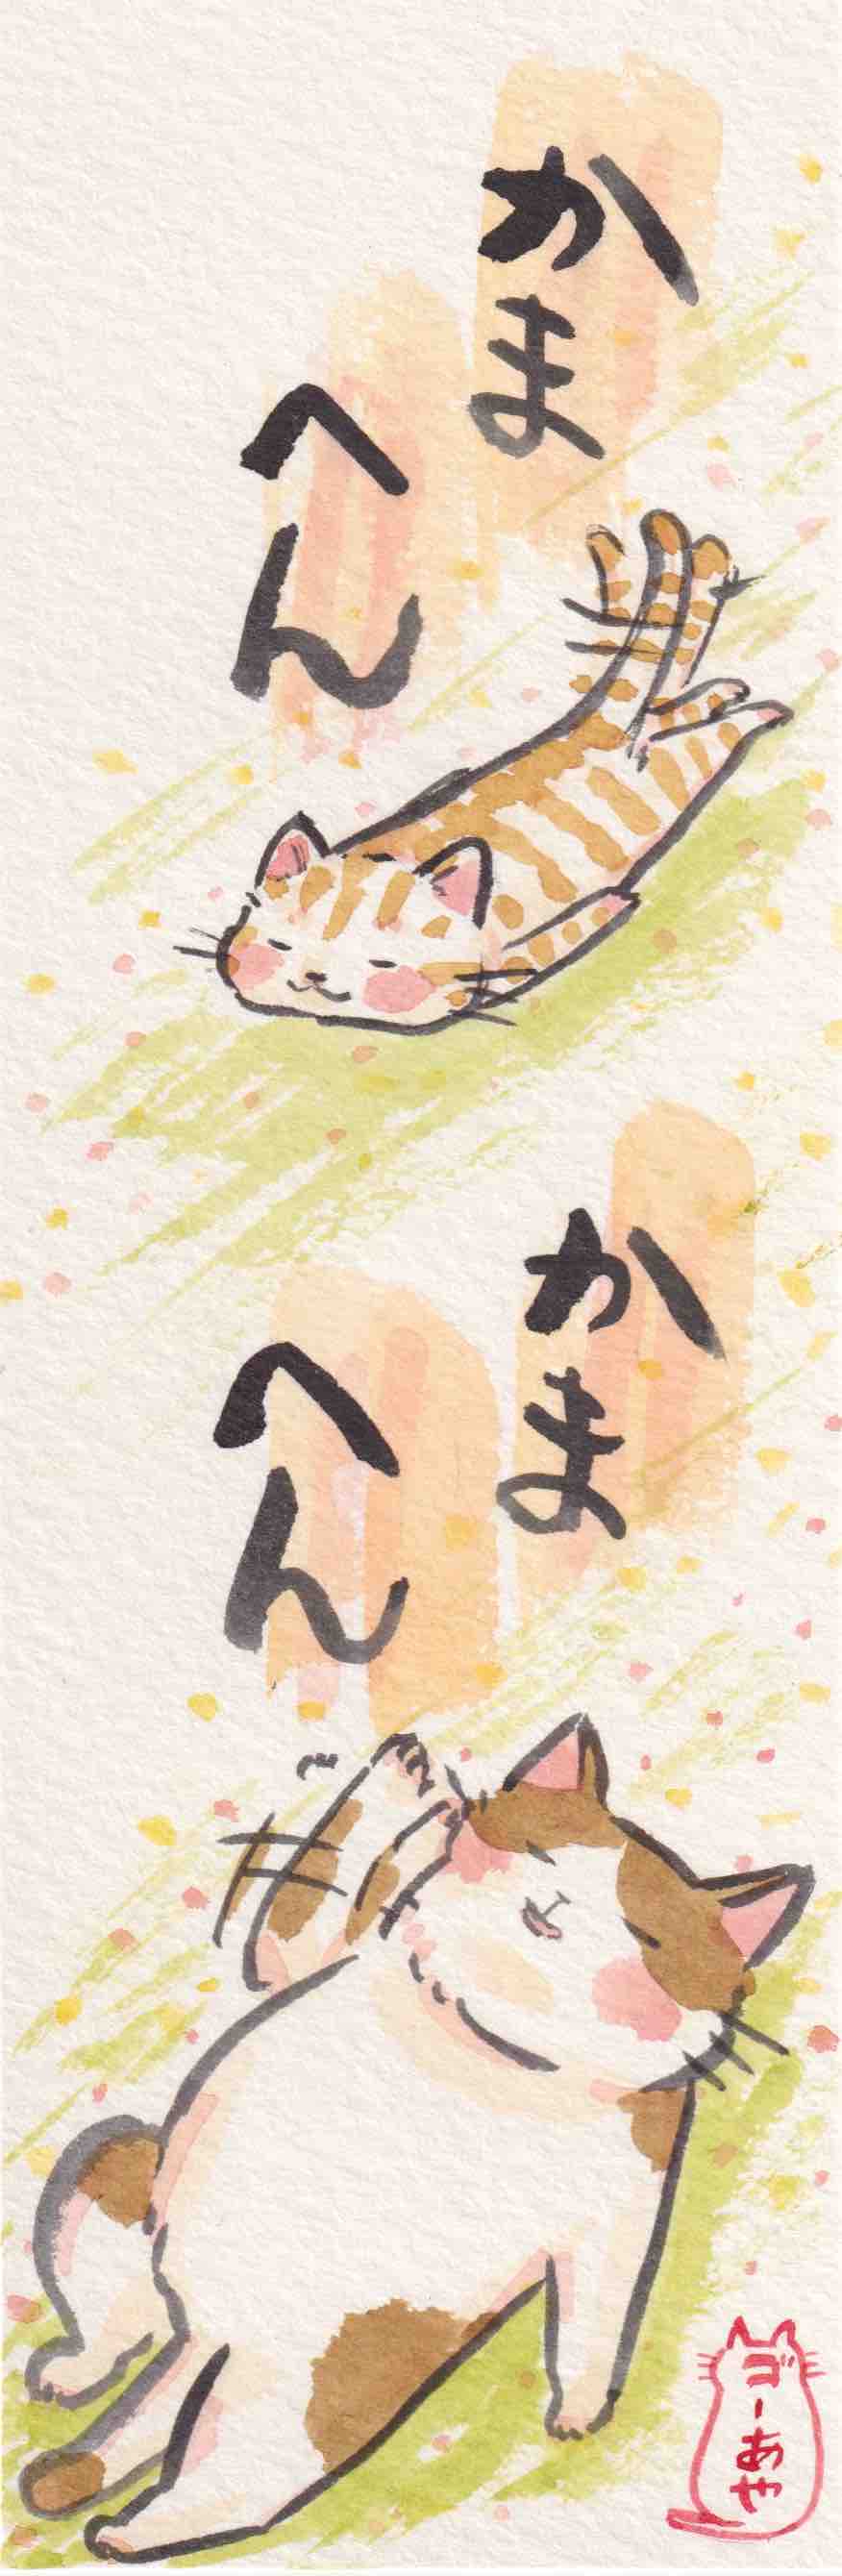 かま
へん
かま
へん
ゴーあや